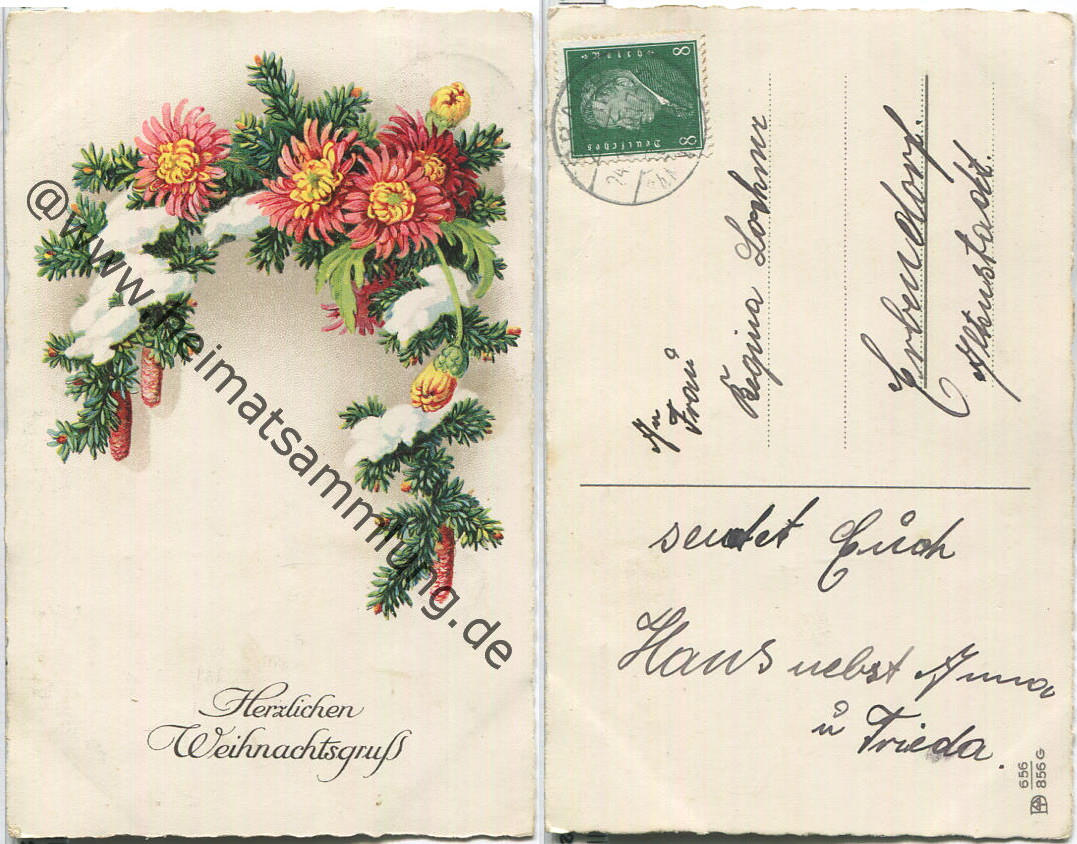 @www.heimatsammlung.de
Herzlichen
Weihnachtsgruß
8 8
Deutsches
24
An
Frau
Regina Lochner
Altenstadt.
sendet Euch
Hans nebst Anna
u Frieda.
656
856 G